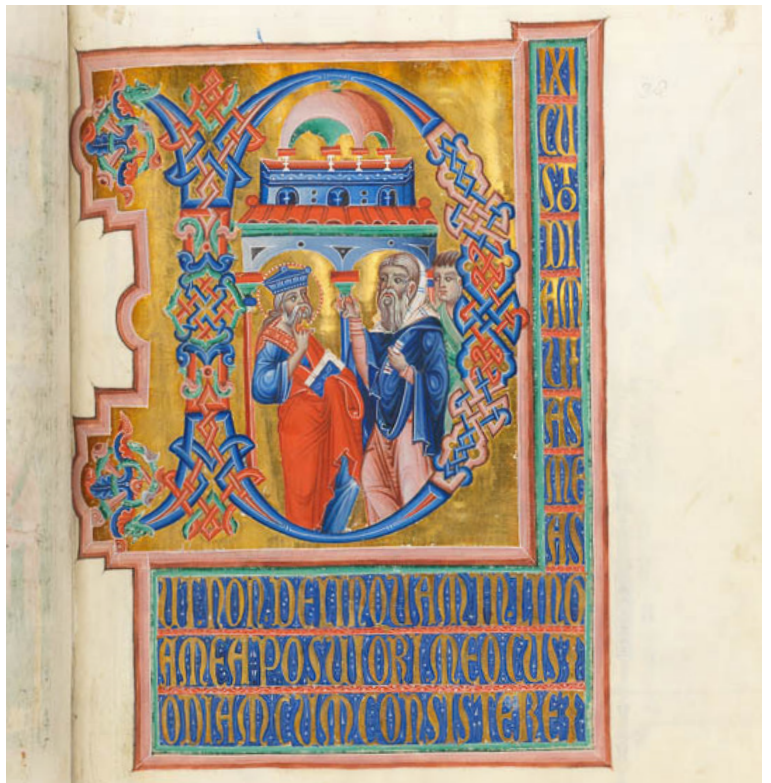 D
IXI
CU
STO
DI
AM
UI
AS
ME
AS
UT NON DELINQUAM IN LING
A MEA POSUI ORI MEO CUST
ODIAM CUM CONSISTERET